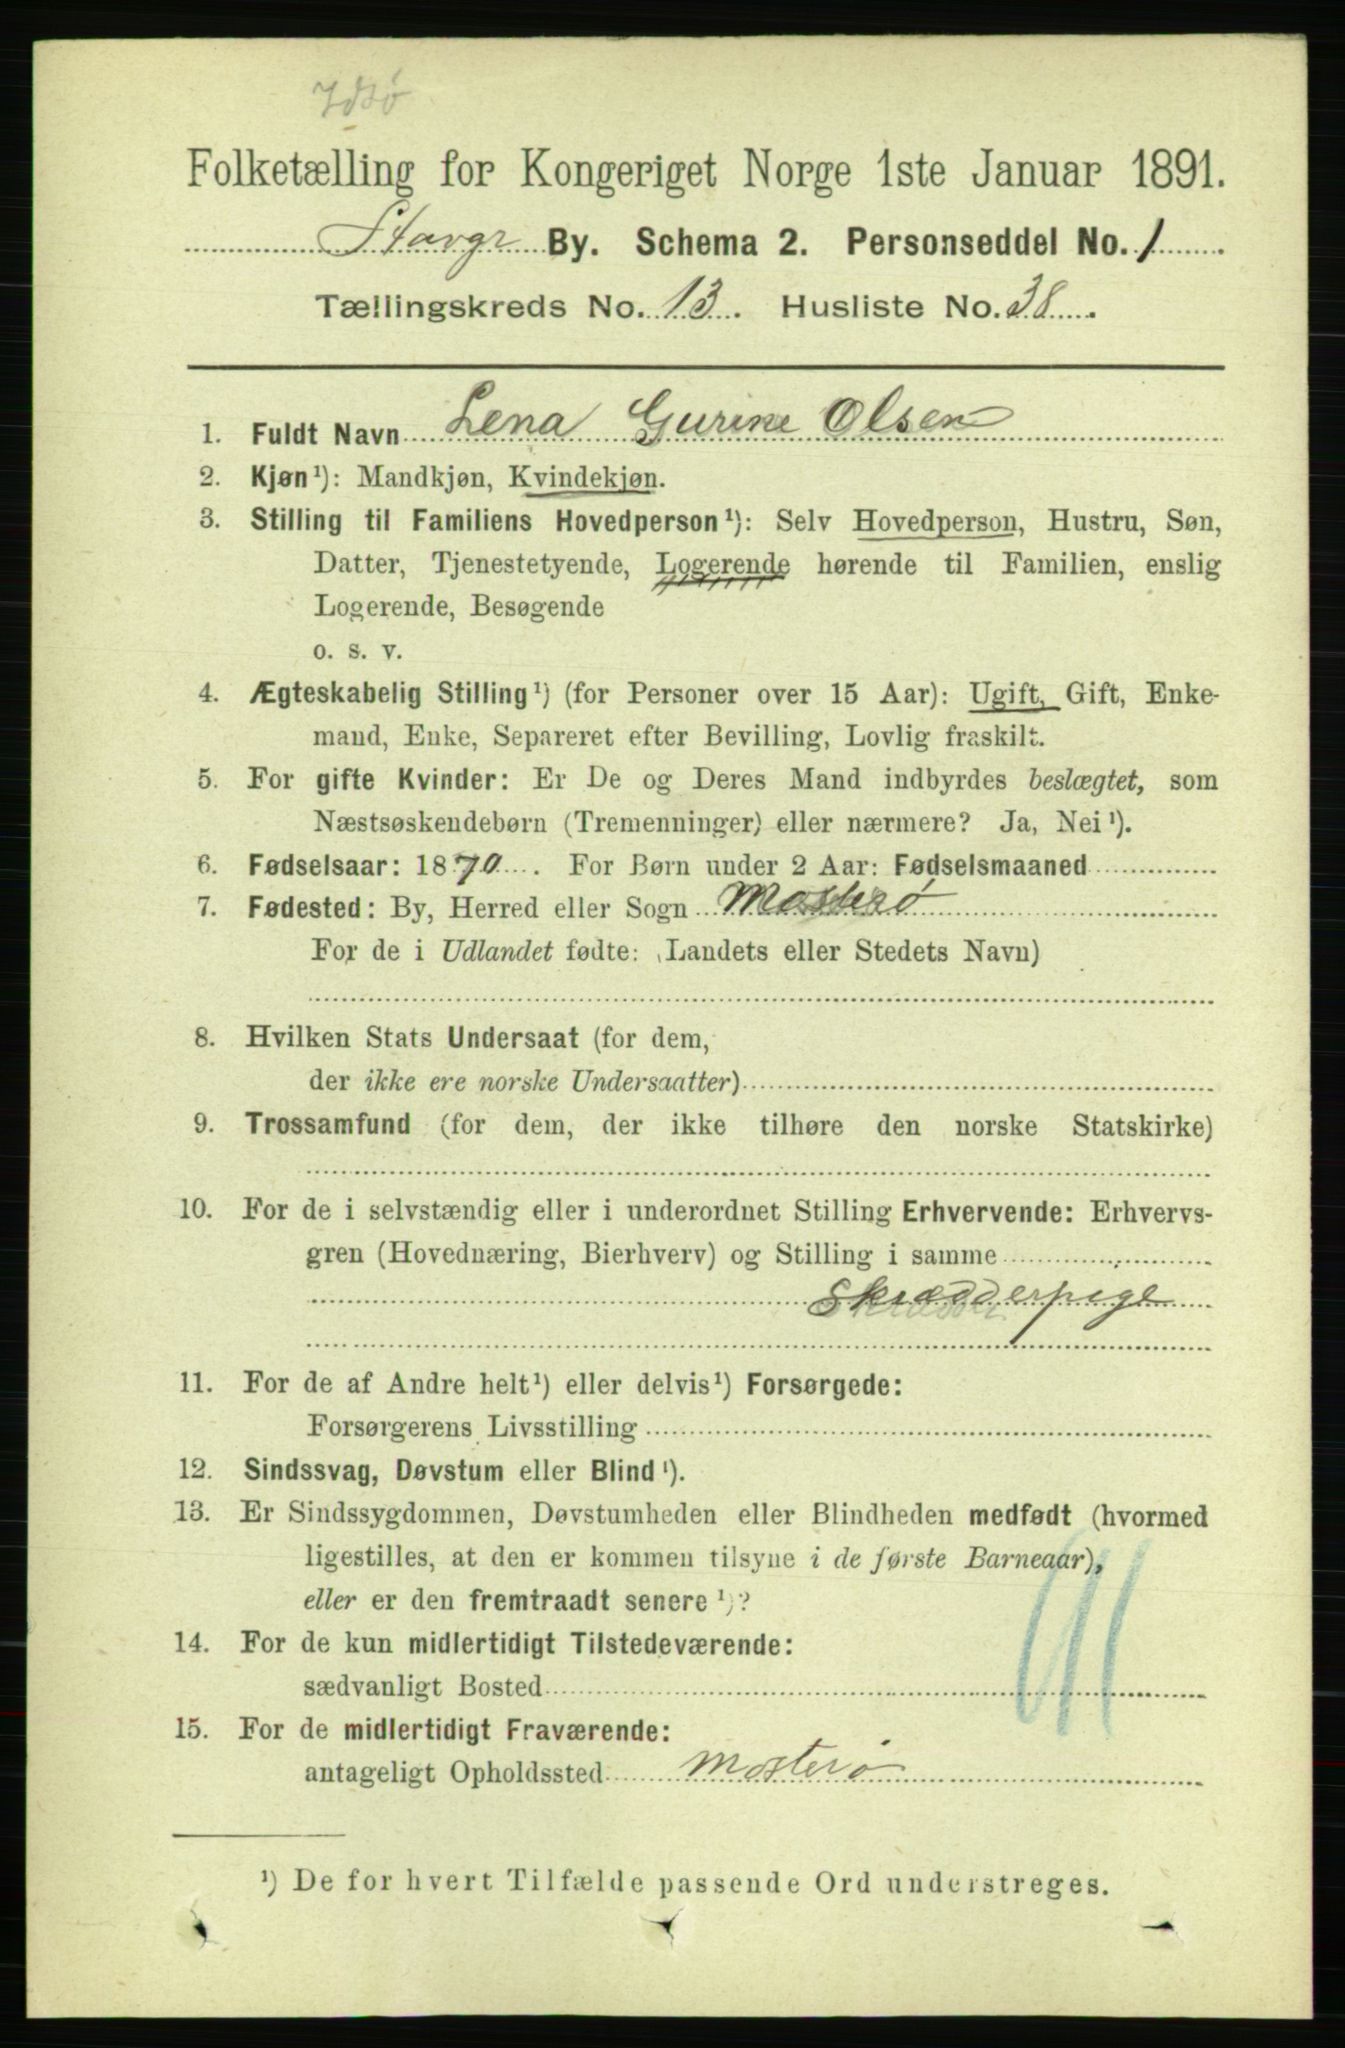 Idsø
Folketælling for Kongeriget Norge 1ste Januar 1891.
Stavgr By. Schema 2. Personseddel No. 1
Tællingskreds No. 13. Husliste No. 38.
1. Fuldt Navn Lena Gurine Olsen
2. Kjøn¹): Mandkjøn, Kvindekjøn.
3. Stilling til Familiens Hovedperson¹): Selv Hovedperson, Hustru, Søn,
Datter, Tjenestetyende, Logerende hørende til Familien, enslig
Logerende, Besøgende
o. s. v.
4. Ægteskabelig Stilling¹) (for Personer over 15 Aar): Ugift, Gift, Enke-
mand, Enke, Separeret efter Bevilling, Lovlig fraskilt.
5. For gifte Kvinder: Er De og Deres Mand indbyrdes beslægtet, som
Næstsøskendebørn (Tremenninger) eller nærmere? Ja, Nei¹).
6. Fødselsaar: 1870. For Børn under 2 Aar: Fødselsmaaned
7. Fødested: By, Herred eller Sogn Mosterø
For de i Udlandet fødte: (Landets eller Stedets Navn)
8. Hvilken Stats Undersaat (for dem,
der ikke ere norske Undersaatter)
9. Trossamfund (for dem, der ikke tilhøre den norske Statskirke)
10. For de i selvstændig eller i underordnet Stilling Erhvervende: Erhvervs-
gren (Hovednæring, Bierhverv) og Stilling i samme
Skrædderpige
11. For de af Andre helt¹) eller delvis¹) Forsørgede:
Forsørgerens Livsstilling
12. Sindssvag, Døvstum eller Blind¹).
13. Er Sindssygdommen, Døvstumheden eller Blindheden medfødt (hvormed
ligestilles, at den er kommen tilsyne i de første Barneaar),
eller er den fremtraadt senere¹)?
14. For de kun midlertidigt Tilstedeværende:
sædvanligt Bosted
15. For de midlertidigt Fraværende:
antageligt Opholdssted Mosterø
¹) De for hvert Tilfælde passende Ord understreges.